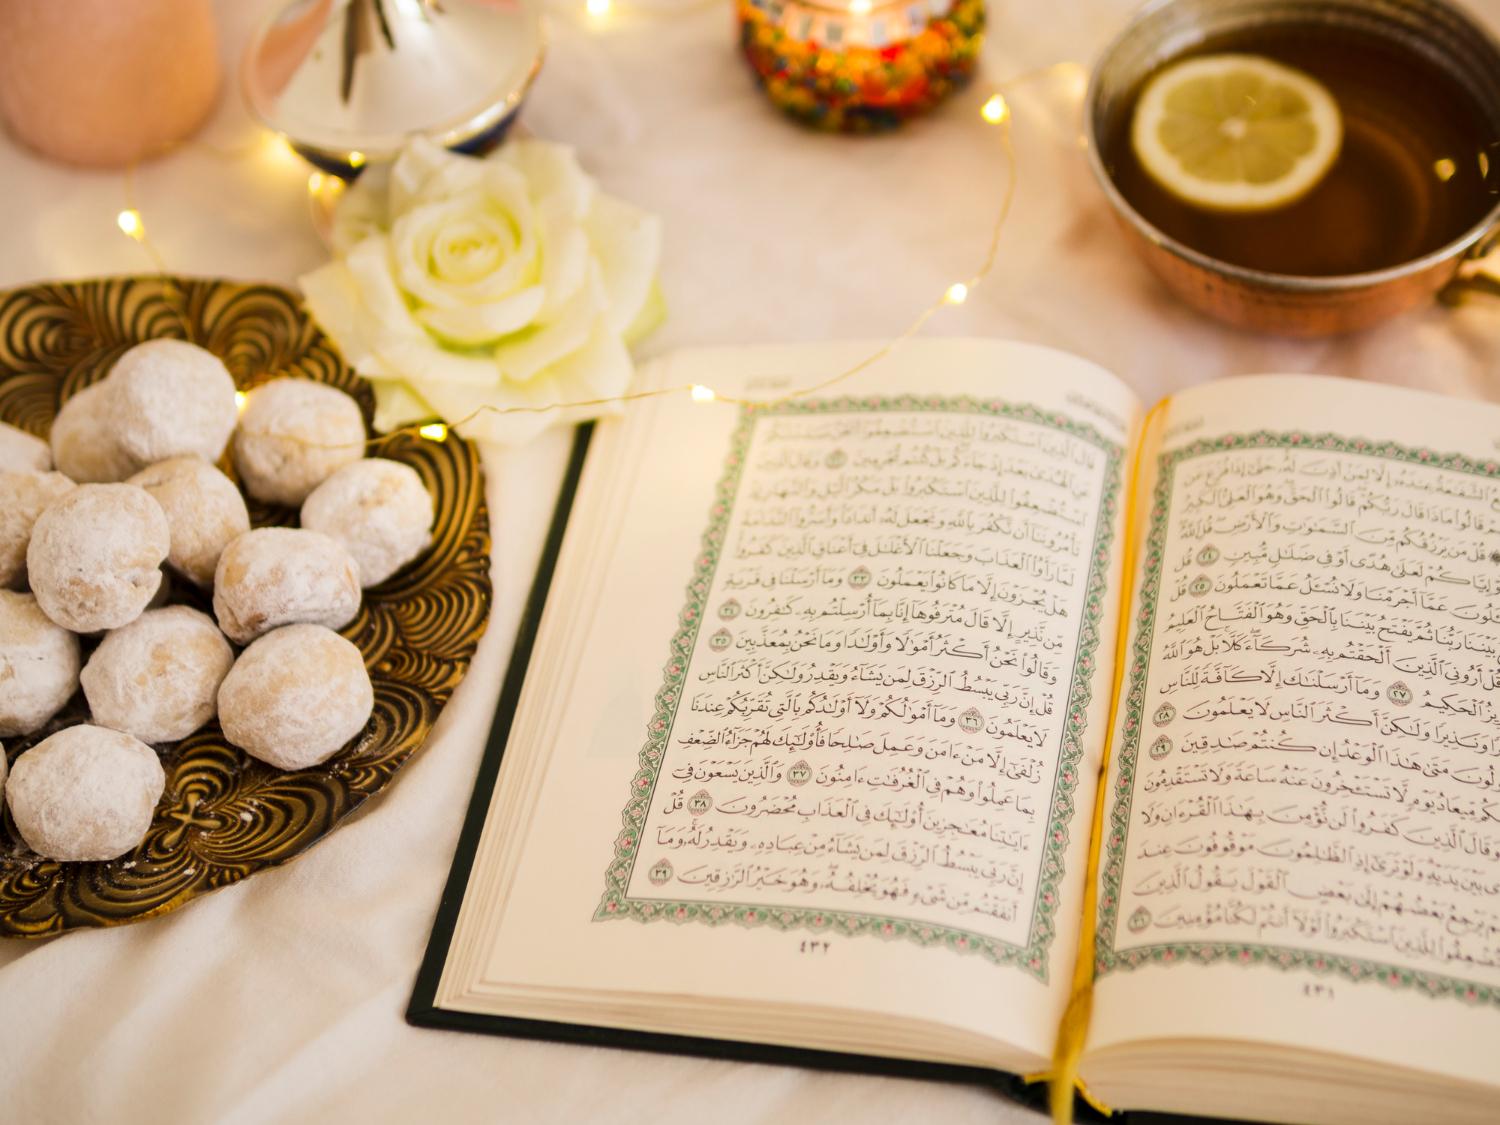 ٱلشَّفَٰعَةُ عِندَهُۥٓ إِلَّا لِمَنْ أَذِنَ لَهُۥ حَتَّىٰٓ إِذَا فُزِّعَ عَن
قَالُوا۟ مَاذَا قَالَ رَبُّكُمْ قَالُوا۟ ٱلْحَقَّ وَهُوَ ٱلْعَلِىُّ ٱلْكَبِيرُ
۞ قُلْ مَن يَرْزُقُكُم مِّنَ ٱلسَّمَٰوَٰتِ وَٱلْأَرْضِ قُلِ ٱللَّهُ
إِيَّاكُمْ لَعَلَىٰ هُدًى أَوْ فِى ضَلَٰلٍ مُّبِينٍ ٢٤ قُل
عَمَّآ أَجْرَمْنَا وَلَا نُسْـَٔلُ عَمَّا تَعْمَلُونَ ٢٥ قُلْ
بَيْنَنَا رَبُّنَا ثُمَّ يَفْتَحُ بَيْنَنَا بِٱلْحَقِّ وَهُوَ ٱلْفَتَّاحُ ٱلْعَلِيمُ
قُلْ أَرُونِىَ ٱلَّذِينَ أَلْحَقْتُم بِهِۦ شُرَكَآءَ كَلَّا بَلْ هُوَ ٱللَّهُ
ٱلْحَكِيمُ ٢٧ وَمَآ أَرْسَلْنَٰكَ إِلَّا كَآفَّةً لِّلنَّاسِ
وَنَذِيرًا وَلَٰكِنَّ أَكْثَرَ ٱلنَّاسِ لَا يَعْلَمُونَ ٢٨
مَتَىٰ هَٰذَا ٱلْوَعْدُ إِن كُنتُمْ صَٰدِقِينَ ٢٩
مِّيعَادُ يَوْمٍ لَّا تَسْتَـْٔخِرُونَ عَنْهُ سَاعَةً وَلَا تَسْتَقْدِمُونَ
وَقَالَ ٱلَّذِينَ كَفَرُوا۟ لَن نُّؤْمِنَ بِهَٰذَا ٱلْقُرْءَانِ وَلَا
بَيْنَ يَدَيْهِ وَلَوْ تَرَىٰٓ إِذِ ٱلظَّٰلِمُونَ مَوْقُوفُونَ عِندَ
يَرْجِعُ بَعْضُهُمْ إِلَىٰ بَعْضٍ ٱلْقَوْلَ يَقُولُ ٱلَّذِينَ
لِلَّذِينَ ٱسْتَكْبَرُوا۟ لَوْلَآ أَنتُمْ لَكُنَّا مُؤْمِنِينَ ٣١
٤٣١
قَالَ ٱلَّذِينَ ٱسْتَكْبَرُوا۟ لِلَّذِينَ ٱسْتُضْعِفُوٓا۟ أَنَحْنُ صَدَدْنَٰكُمْ
عَنِ ٱلْهُدَىٰ بَعْدَ إِذْ جَآءَكُم بَلْ كُنتُم مُّجْرِمِينَ ٣٢ وَقَالَ ٱلَّذِينَ
ٱسْتُضْعِفُوا۟ لِلَّذِينَ ٱسْتَكْبَرُوا۟ بَلْ مَكْرُ ٱلَّيْلِ وَٱلنَّهَارِ إِذْ
تَأْمُرُونَنَآ أَن نَّكْفُرَ بِٱللَّهِ وَنَجْعَلَ لَهُۥٓ أَندَادًا وَأَسَرُّوا۟ ٱلنَّدَامَةَ
لَمَّا رَأَوُا۟ ٱلْعَذَابَ وَجَعَلْنَا ٱلْأَغْلَٰلَ فِىٓ أَعْنَاقِ ٱلَّذِينَ كَفَرُوا۟
هَلْ يُجْزَوْنَ إِلَّا مَا كَانُوا۟ يَعْمَلُونَ ٣٣ وَمَآ أَرْسَلْنَا فِى قَرْيَةٍ
مِّن نَّذِيرٍ إِلَّا قَالَ مُتْرَفُوهَآ إِنَّا بِمَآ أُرْسِلْتُم بِهِۦ كَٰفِرُونَ ٣٤
وَقَالُوا۟ نَحْنُ أَكْثَرُ أَمْوَٰلًا وَأَوْلَٰدًا وَمَا نَحْنُ بِمُعَذَّبِينَ ٣٥
قُلْ إِنَّ رَبِّى يَبْسُطُ ٱلرِّزْقَ لِمَن يَشَآءُ وَيَقْدِرُ وَلَٰكِنَّ أَكْثَرَ ٱلنَّاسِ
لَا يَعْلَمُونَ ٣٦ وَمَآ أَمْوَٰلُكُمْ وَلَآ أَوْلَٰدُكُم بِٱلَّتِى تُقَرِّبُكُمْ عِندَنَا
زُلْفَىٰٓ إِلَّا مَنْ ءَامَنَ وَعَمِلَ صَٰلِحًا فَأُو۟لَٰٓئِكَ لَهُمْ جَزَآءُ ٱلضِّعْفِ
بِمَا عَمِلُوا۟ وَهُمْ فِى ٱلْغُرُفَٰتِ ءَامِنُونَ ٣٧ وَٱلَّذِينَ يَسْعَوْنَ فِىٓ
ءَايَٰتِنَا مُعَٰجِزِينَ أُو۟لَٰٓئِكَ فِى ٱلْعَذَابِ مُحْضَرُونَ ٣٨ قُلْ
إِنَّ رَبِّى يَبْسُطُ ٱلرِّزْقَ لِمَن يَشَآءُ مِنْ عِبَادِهِۦ وَيَقْدِرُ لَهُۥ وَمَآ
أَنفَقْتُم مِّن شَىْءٍ فَهُوَ يُخْلِفُهُۥ وَهُوَ خَيْرُ ٱلرَّٰزِقِينَ ٣٩
٤٣٢